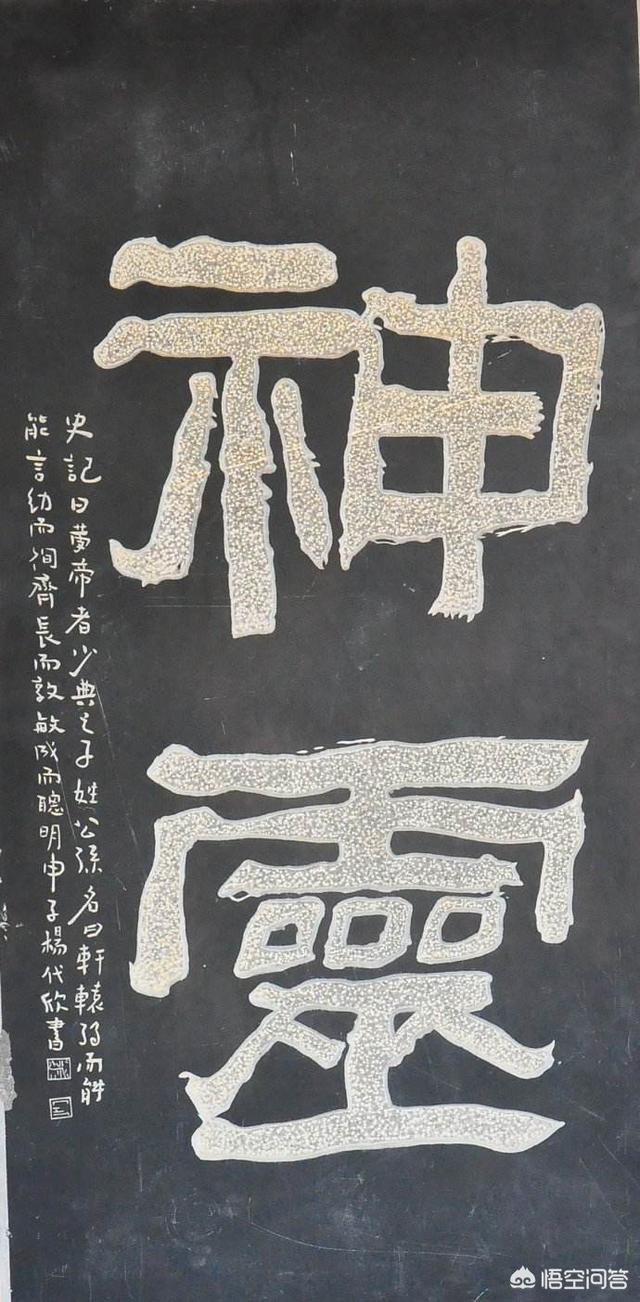 神靈
史記曰黃帝者少典之子姓公孫名曰軒轅弱而能
能言幼而徇齊長而敦敏成而聰明申子楊代欣書
悟空问答